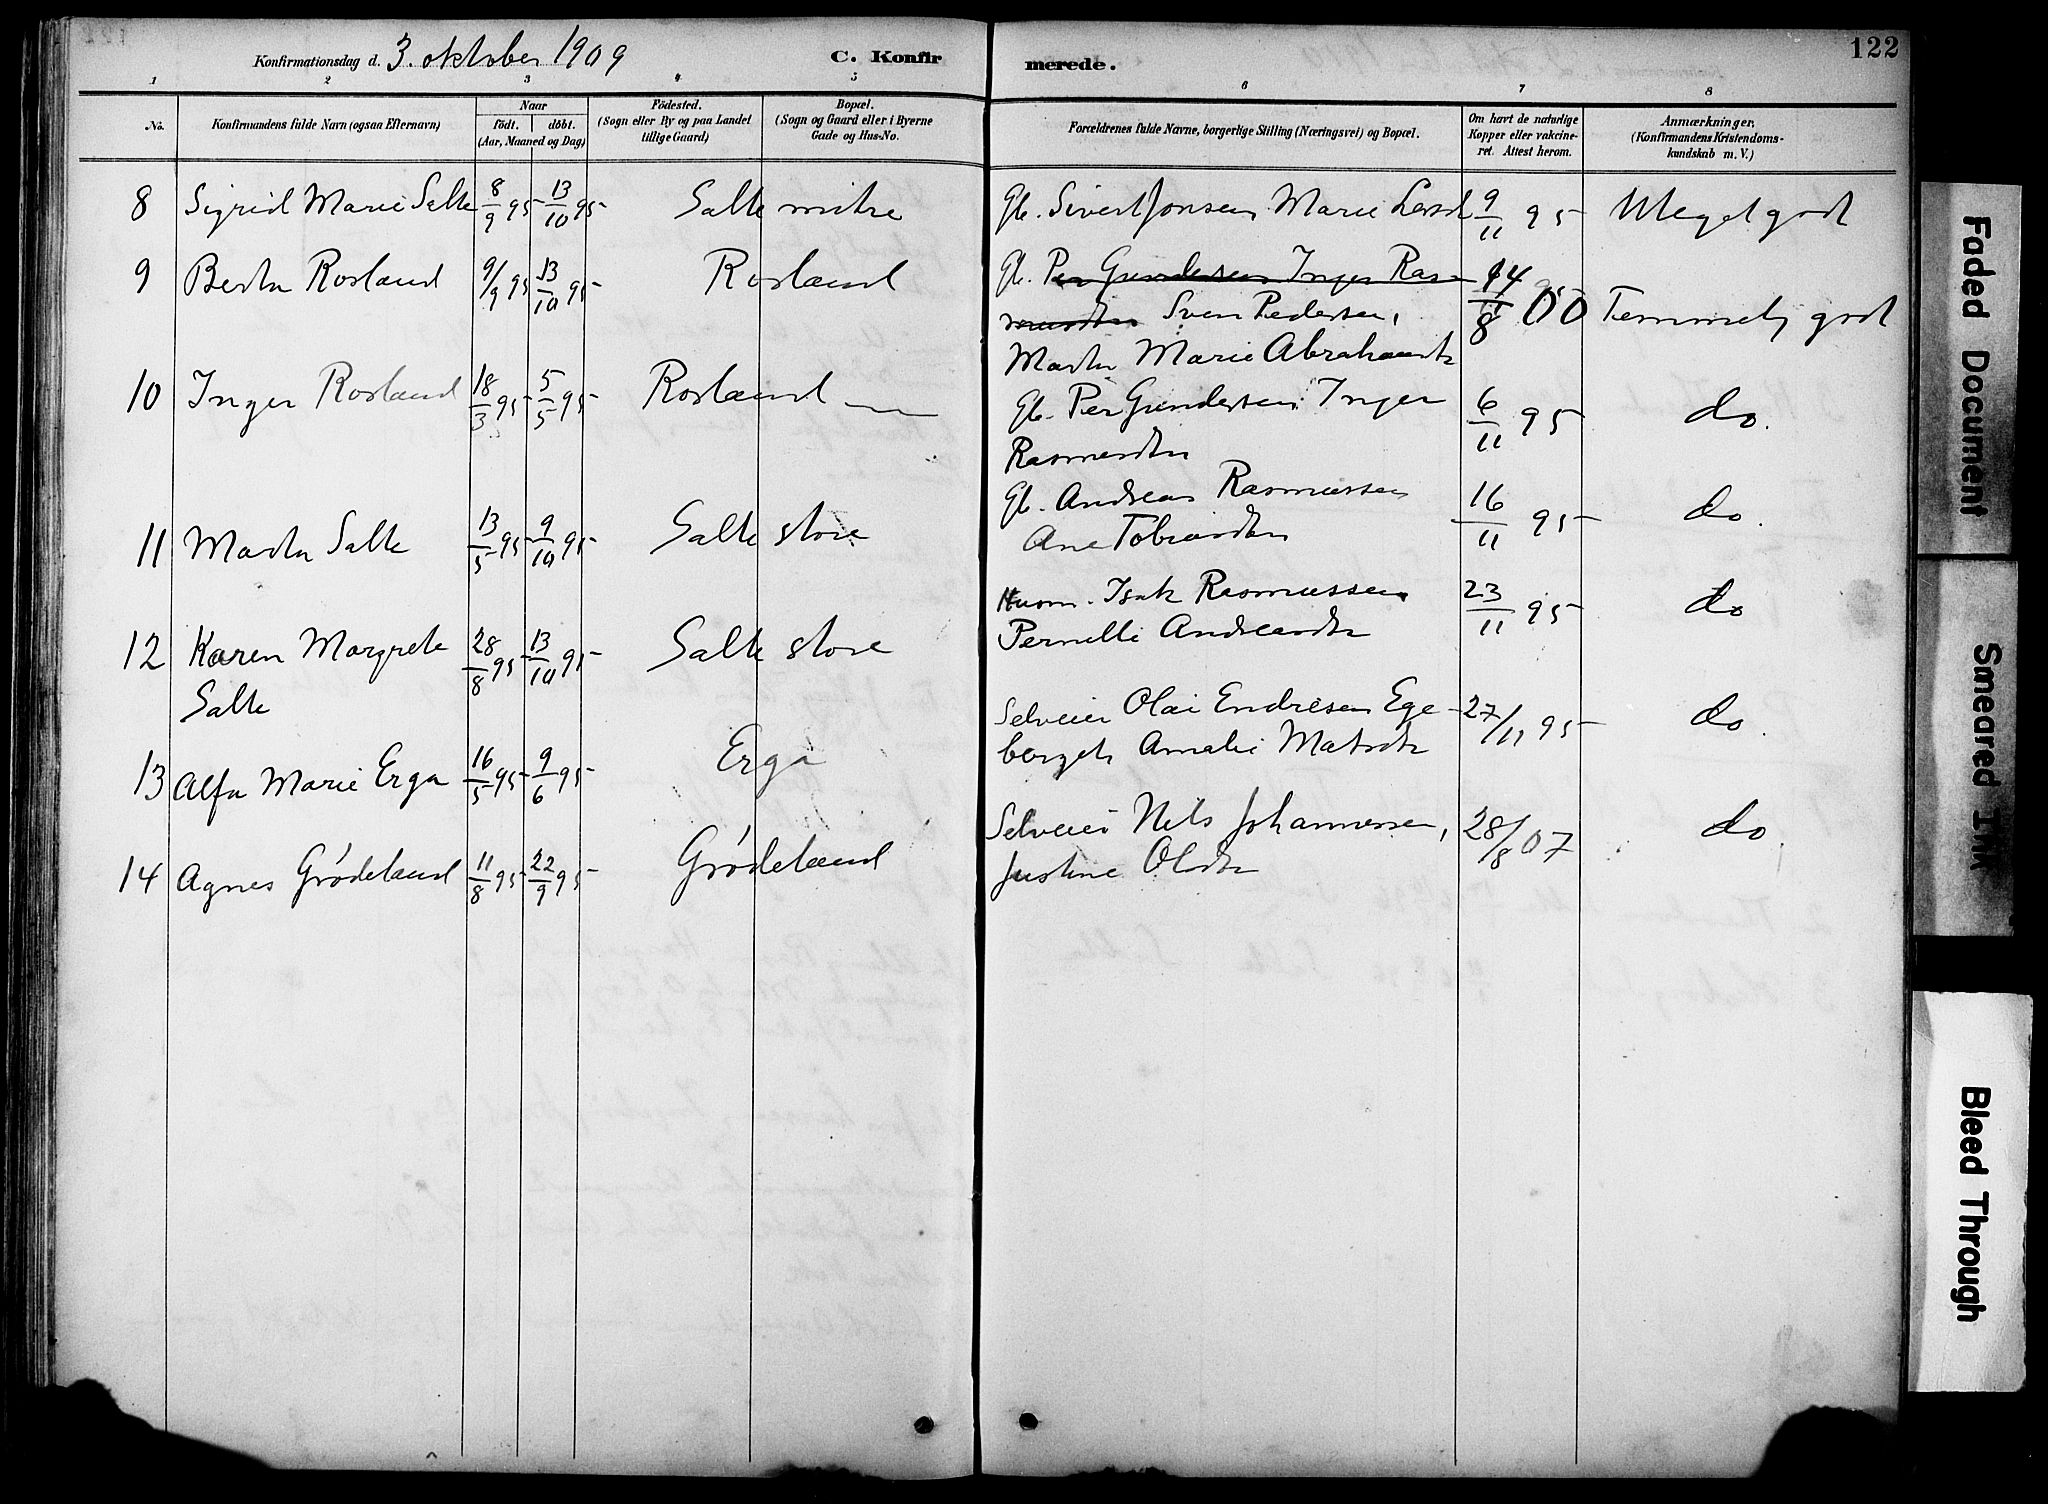 122
Konfirmationsdag d. 3. oktober 1909 C. Konfirmerede.
1 2 3 4 5 6 7 8
No.
Konfirmandens fulde Navn (ogsaa Efternavn)
Naar
født. døbt.
(Aar, Maaned og Dag)
Födested.
(Sogn eller By og paa Landet
tillige Gaard)
Bopæl.
(Sogn og Gaard eller i Byerne
Gade og Hus-No.
Forældrenes fulde Navne, borgerlige Stilling (Næringsvei) og Bopæl.
Om havt de naturlige
Kopper eller vakcine-
ret. Attest herom.
Anmærkninger.
(Konfirmandens Kristendoms-
kundskab m. V.)
8 Sigrid Marie Salte 8/9 95 13/10 95 Salte midre Gb. Sivert Jonsen Marie Larsd 9/11 95 Meget godt
9 Berta Rosland 9/9 95 13/10 95 Rosland Gb. Per Gundersen Inger Ras-
musdtr Sven Pedersen, 14/8 00 Temmelig godt
Marta Marie Abrahamsdtr
10 Inger Rosland 18/3 95 5/5 95 Rosland — Gb. Per Gundersen, Inger 6/11 95 do.
Rasmusdtr
11 Marta Salte 13/5 95 9/10 95 Salte store Gb. Andreas Rasmussen 16/11 95 do.
Ane Tobiasdtr
12 Karen Margrete 28/8 95 13/10 95 Salte store Husm. Isak Rasmussen 23/11 95 do
Salte Pernille Andreasdtr
13 Alfa Marie Erga 16/5 95 9/6 95 Erga Selveier Olai Endresen Ege- 27/11 95 do.
berget Amalie Matsdtr
14 Agnes Grødeland 11/8 95 22/9 95 Grødeland Selveier Nils Johannessen, 28/8 07 do
Justine Olsdtr
Faded Document
Smeared Ink
Bleed Through